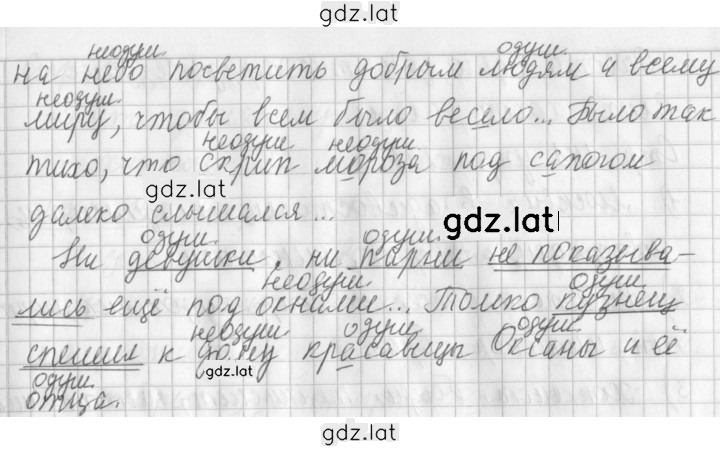 gdz.lat
неодуш. одуш.
на небо посветить добрым людям и всему
неодуш.
миру, чтобы всем было весело... Было так
неодуш. неодуш.
тихо, что скрип мороза под сапогом
gdz.lat
далеко слышался...
gdz.lat
одуш. одуш.
Ни девушки, ни парни не показыва-
неодуш. одуш.
лись ещё под окнами... Только кузнец
неодуш. одуш. одуш.
спешил к дому красавицы Оксаны и её
gdz.lat
одуш.
отца.
gdz.lat